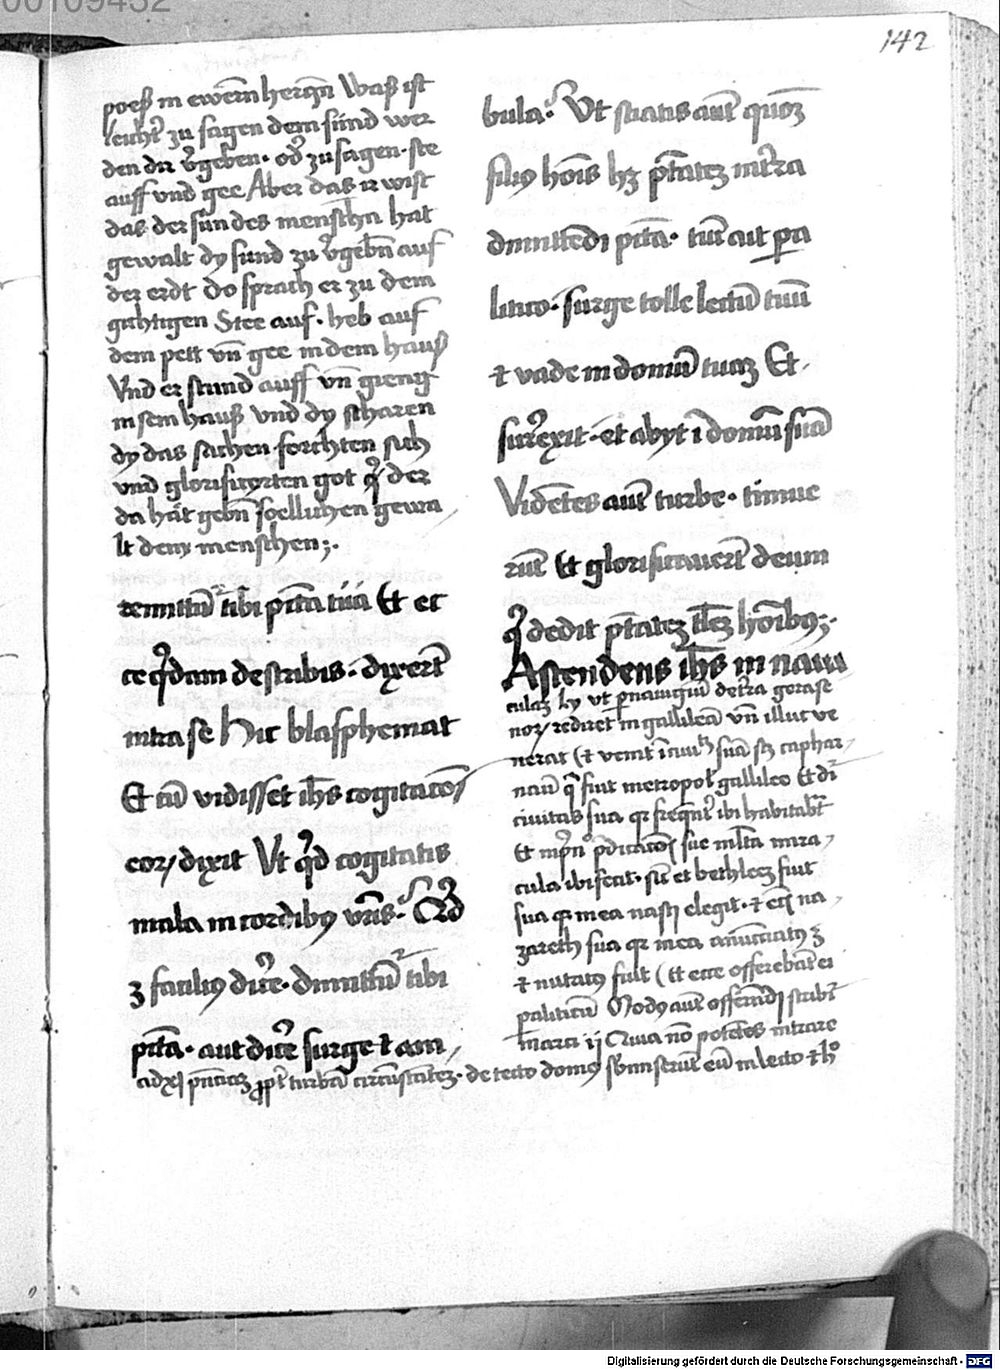 00109432
142
poeß in ewern herczn Waß ist
leicht' zu sagen dem sünd wer
den dir v'geben · od' zu sagen · ste
auff vnd gee Aber das ir wist
das der sün des menschn hat
gewalt dy sund zu v'gebn auf
der erdt Do sprach er zu dem
gichtigen Stee auf · heb auf
dem pett vn̄ gee in dem hauß
Vnd er stund auff vn̄ gieng
in sein hauß vnd dy scharen
dy das sachen forchten sich
vnd glorificyrten got q' der
da hat gebn soellichen gewa
lt den menschen ;·
remittūt' tibi pc̄ta tua Et ec
ce q'dam de scribis · dixer̄t
intra se Hic blasphemat
Et cū vidisset ih̄s cogitacōes
eoꝝ dixit Vt q'd cogitatis
mala in cordibꝰ vr̄is · Q'd
ꝫ faciliꝰ dic'e · dimittūt' tibi
pc̄ta · aut dic'e surge ⁊ am
bula · Vt sciatis aut̄ quoꝫ
filiꝰ hoīs hꝫ pt̄atē in t'ra
dimittēdi pc̄ta · tūc ait pa
litico · surge tolle lectū tuū
⁊ vade in domū tuaꝫ Et ·
surrexit · et abyt ī domū suā
Vidētes aut̄ turbe · timue
rūt Et glorificauer̄t deum
q' dedit pt̄ateꝫ tl̄eꝫ hoībꝰ ;·
Ascendens ih̄s in naui
culaꝫ hy vt p nauigiū de t'ra gerase
noꝝ rediret in gallileā vn̄ illuc ve
nerat ( ⁊ venit ī ciuitatē suā sꝫ caphar
naū q̄ fuit metropol' gallilee Et dr̄
ciuitas sua qꝛ frequēt' ibi habitab̄t
cula ibi fecit · sic̄ et bethleeꝫ fuit
sua qꝛ in ea nasci elegit · ⁊ eciā na
zareth sua qꝛ in ea annūciatꝰ ꝫ
⁊ nutritꝰ fuit ( Et ecce offerebāt ei
paliticū Modꝰ aut̄ offerendi scribt̄
marci ij Quia nō potētes intrare
turbā circūstāteꝫ · de tecto domꝰ sūmiserūt eū in lecto
Digitalisierung gefördert durch die Deutsche Forschungsgemeinschaft · DFG